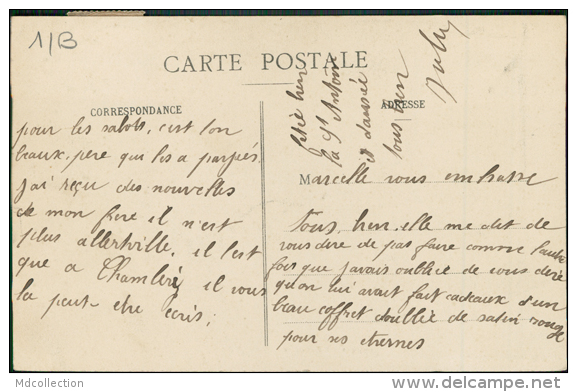 1/B
CARTE POSTALE
CORRESPONDANCE
ADRESSE
pour les sabots, c'est ton
beaux pere qui les a
j'ai reçu des nouvelles
de mon frere il n'est
plus il est
que a Chambéri il vous
la peut etre ecris.
fêtié hen
la St Antoine
et dansée
tous hen
Marcelle vous embrasse
tous, hen, elle me dit de
vous dire de pas faire comme l'autre
fois que j'avais oublié de vous dire
qu'on lui avait fait cadeaux d'un
beau coffret doublée de satin rouge
pour ses etrennes
Mdcollection
www.delcampe.net